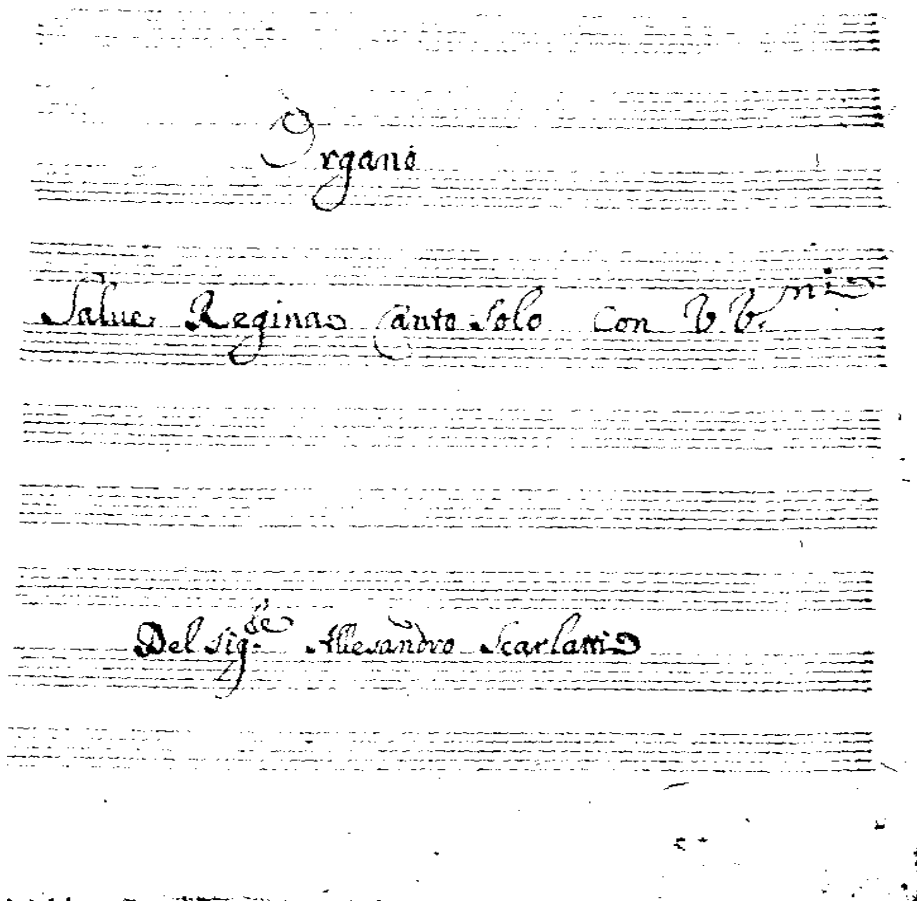 Organo
Salue Regina Canto Solo Con VV.ni
Del Sig.re Allesandro Scarlatti